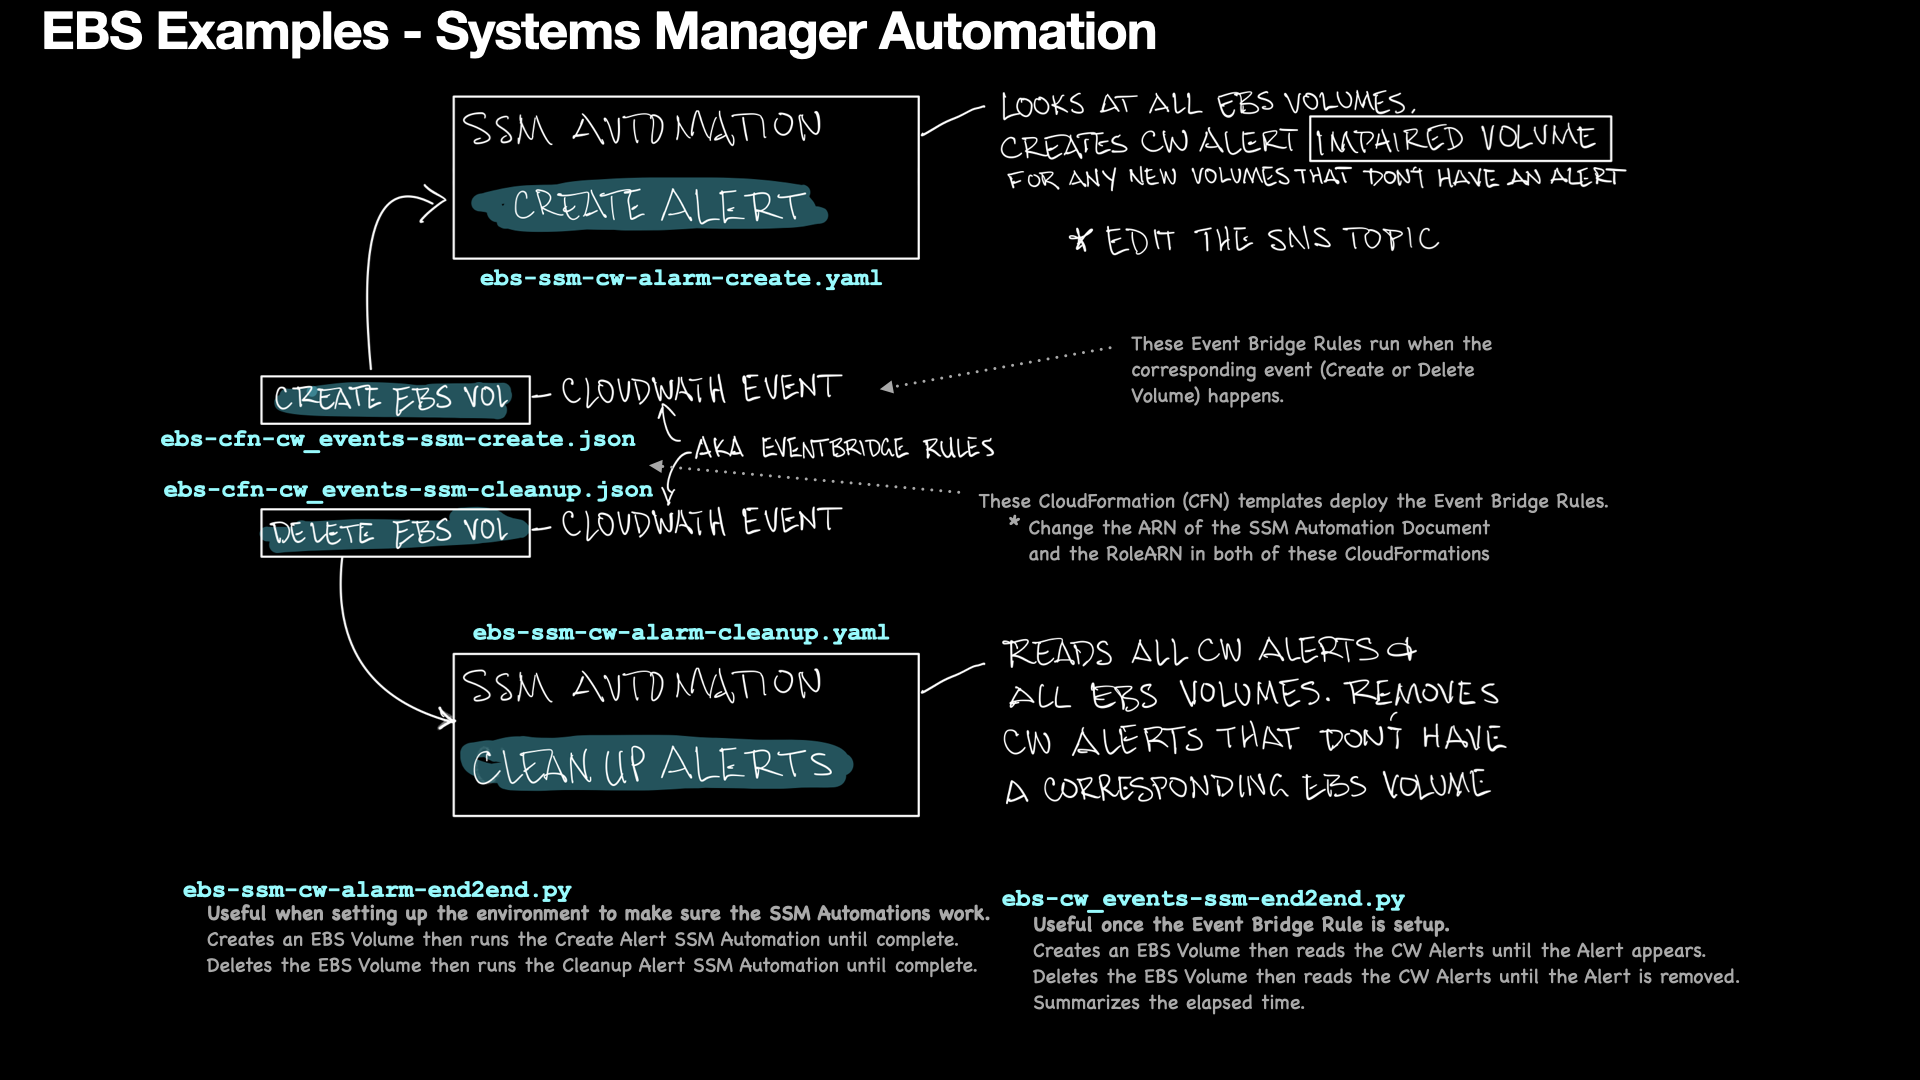 EBS Examples - Systems Manager Automation
SSM AUTOMATION
CREATE ALERT
ebs-ssm-cw-alarm-create.yaml
LOOKS AT ALL EBS VOLUMES.
CREATES CW ALERT IMPAIRED VOLUME
FOR ANY NEW VOLUMES THAT DON'T HAVE AN ALERT
* EDIT THE SNS TOPIC
These Event Bridge Rules run when the
corresponding event (Create or Delete
Volume) happens.
CREATE EBS VOL - CLOUDWATH EVENT
ebs-cfn-cw_events-ssm-create.json
AKA EVENTBRIDGE RULES
ebs-cfn-cw_events-ssm-cleanup.json
DELETE EBS VOL - CLOUDWATH EVENT
These CloudFormation (CFN) templates deploy the Event Bridge Rules.
* Change the ARN of the SSM Automation Document
and the RoleARN in both of these CloudFormations
ebs-ssm-cw-alarm-cleanup.yaml
SSM AUTOMATION
CLEAN UP ALERTS
READS ALL CW ALERTS &
ALL EBS VOLUMES. REMOVES
CW ALERTS THAT DON'T HAVE
A CORRESPONDING EBS VOLUME
ebs-ssm-cw-alarm-end2end.py
Useful when setting up the environment to make sure the SSM Automations work.
Creates an EBS Volume then runs the Create Alert SSM Automation until complete.
Deletes the EBS Volume then runs the Cleanup Alert SSM Automation until complete.
ebs-cw_events-ssm-end2end.py
Useful once the Event Bridge Rule is setup.
Creates an EBS Volume then reads the CW Alerts until the Alert appears.
Deletes the EBS Volume then reads the CW Alerts until the Alert is removed.
Summarizes the elapsed time.